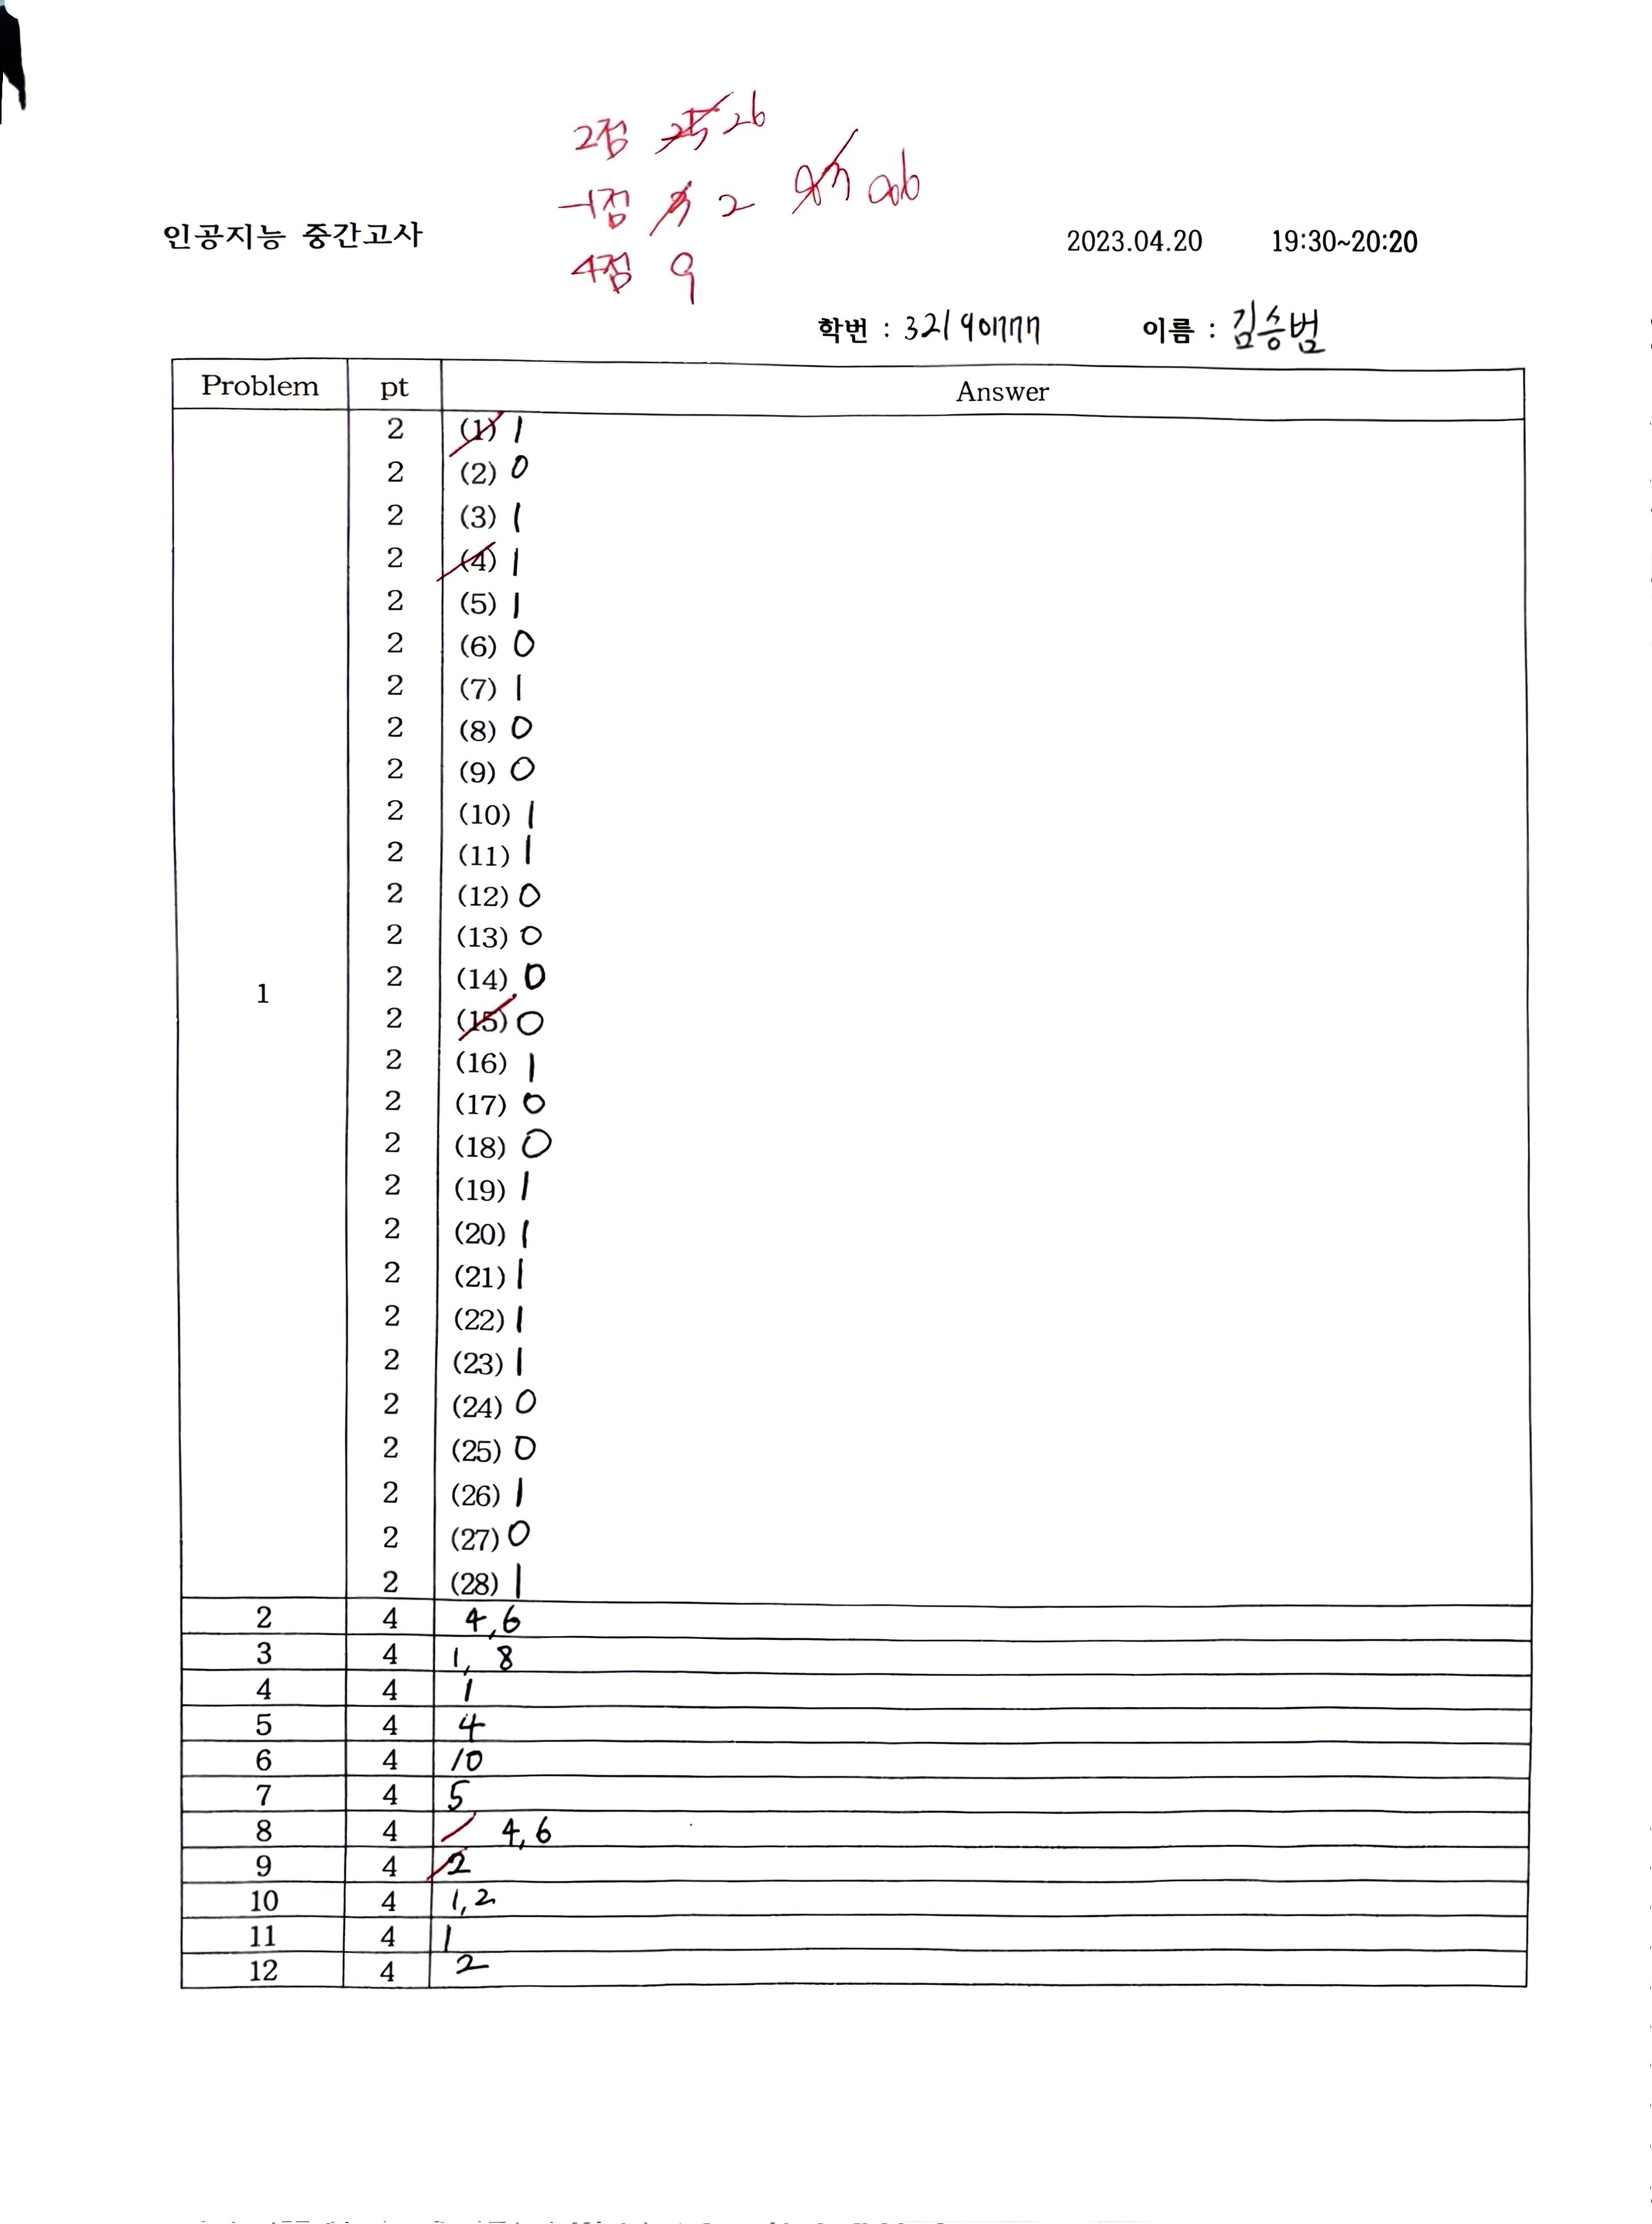 2점 26
-1점 2
4점 9
인공지능 중간고사 2023.04.20 19:30~20:20
학번 : 32190777 이름 : 김승범
Problem pt Answer
2 (1) 1
2 (2) 0
2 (3) 1
2 (4) 1
2 (5) 1
2 (6) 0
2 (7) 1
2 (8) 0
2 (9) 0
2 (10) 1
2 (11) 1
2 (12) 0
2 (13) 0
2 (14) 0
1 2 (15) 0
2 (16) 1
2 (17) 0
2 (18) 0
2 (19) 1
2 (20) 1
2 (21) 1
2 (22) 1
2 (23) 1
2 (24) 0
2 (25) 0
2 (26) 1
2 (27) 0
2 (28) 1
2 4 4,6
3 4 1, 8
4 4 1
5 4 4
6 4 10
7 4 5
8 4 4,6
9 4 2
10 4 1,2
11 4 1
12 4 2